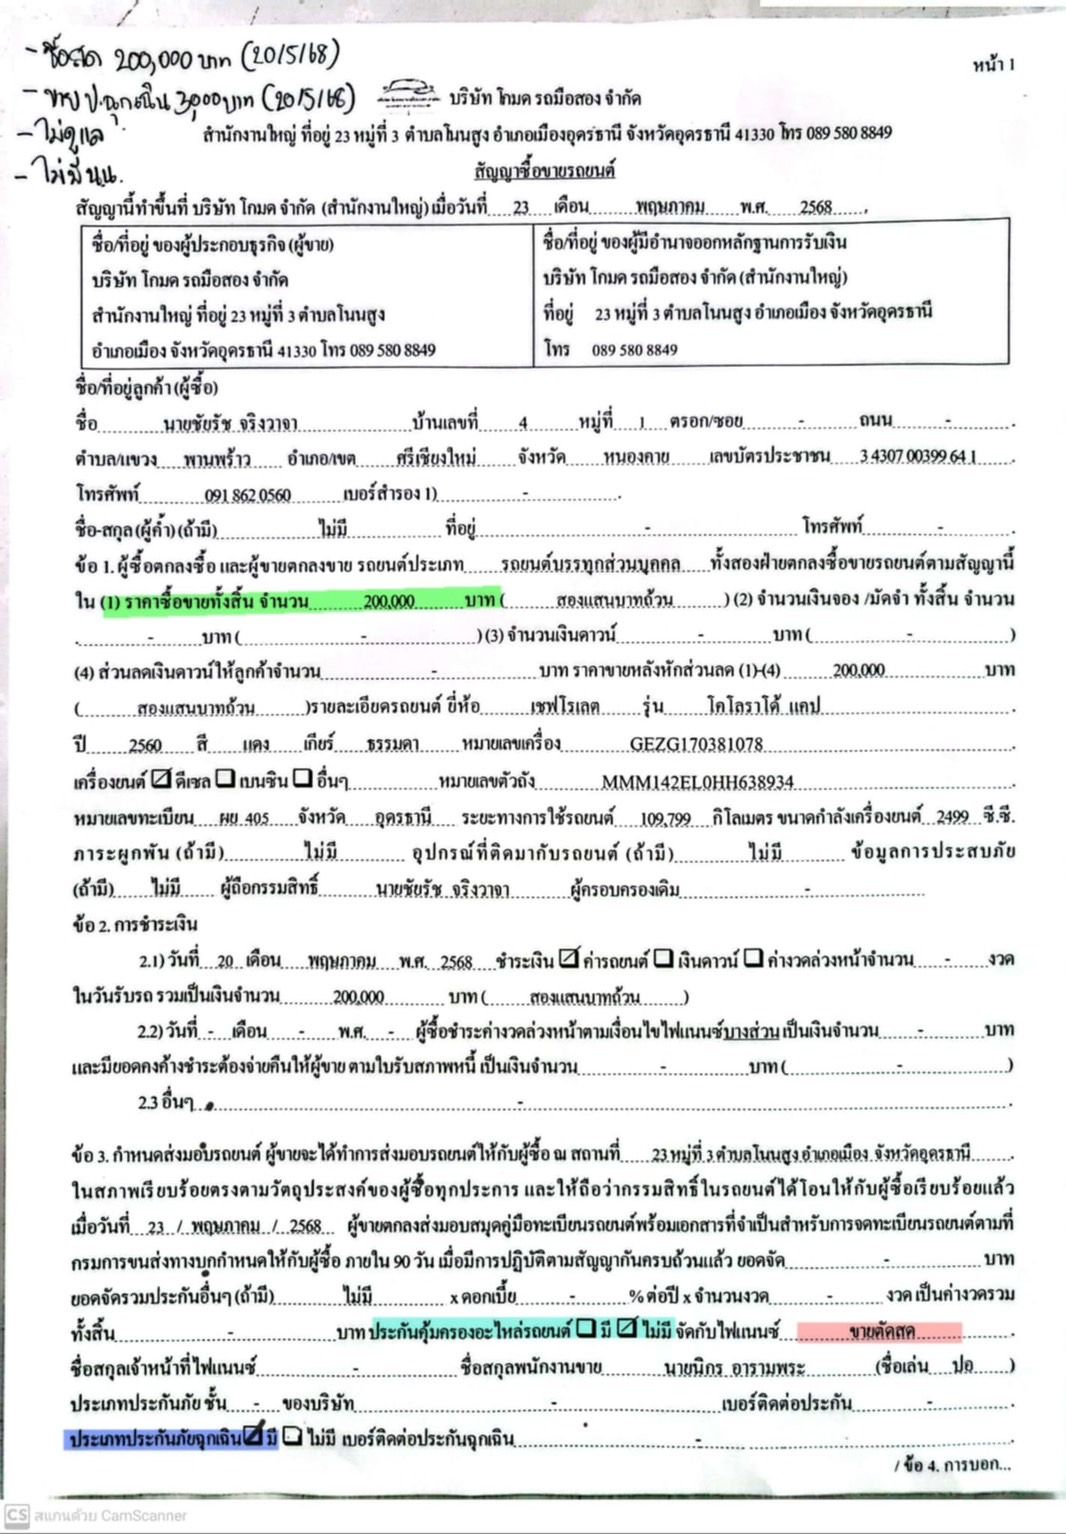 - ซื้อสด 200,000 บาท (20/5/68)
หน้า 1
- ขาย ป.ฉุกเฉิน 3,000 บาท (20/5/68)
บริษัท โกมด รถมือสอง จำกัด
- ไม่ดูแล
สำนักงานใหญ่ ที่อยู่ 23 หมู่ที่ 3 ตำบลโนนสูง อำเภอเมืองอุดรธานี จังหวัดอุดรธานี 41330 โทร 089 580 8849
- ไม่มี นน.
สัญญาซื้อขายรถยนต์
สัญญานี้ทำขึ้นที่ บริษัท โกมด จำกัด (สำนักงานใหญ่) เมื่อวันที่ 23 เดือน พฤษภาคม พ.ศ. 2568
ชื่อ/ที่อยู่ ของผู้ประกอบธุรกิจ (ผู้ขาย)
บริษัท โกมด รถมือสอง จำกัด
สำนักงานใหญ่ ที่อยู่ 23 หมู่ที่ 3 ตำบลโนนสูง
อำเภอเมือง จังหวัดอุดรธานี 41330 โทร 089 580 8849
ชื่อ/ที่อยู่ ของผู้มีอำนาจออกหลักฐานการรับเงิน
บริษัท โกมด รถมือสอง จำกัด (สำนักงานใหญ่)
ที่อยู่ 23 หมู่ที่ 3 ตำบลโนนสูง อำเภอเมือง จังหวัดอุดรธานี
โทร 089 580 8849
ชื่อ/ที่อยู่ลูกค้า (ผู้ซื้อ)
ชื่อ นายชัยรัช จริงวาจา บ้านเลขที่ 4 หมู่ที่ 1 ตรอก/ซอย - ถนน -
ตำบล/แขวง พานพร้าว อำเภอ/เขต ศรีเชียงใหม่ จังหวัด หนองคาย เลขบัตรประชาชน 3 4307 00399 64 1
โทรศัพท์ 091 862 0560 เบอร์สำรอง 1) -
ชื่อ-สกุล (ผู้ค้ำ) (ถ้ามี) ไม่มี ที่อยู่ - โทรศัพท์ -
ข้อ 1. ผู้ซื้อตกลงซื้อ และผู้ขายตกลงขาย รถยนต์ประเภท รถยนต์บรรทุกส่วนบุคคล ทั้งสองฝ่ายตกลงซื้อขายรถยนต์ตามสัญญานี้
ใน (1) ราคาซื้อขายทั้งสิ้น จำนวน 200,000 บาท ( สองแสนบาทถ้วน ) (2) จำนวนเงินจอง /มัดจำ ทั้งสิ้น จำนวน
- บาท ( - ) (3) จำนวนเงินดาวน์ - บาท ( - )
(4) ส่วนลดเงินดาวน์ให้ลูกค้าจำนวน - บาท ราคาขายหลังหักส่วนลด (1)-(4) 200,000 บาท
( สองแสนบาทถ้วน )รายละเอียดรถยนต์ ยี่ห้อ เชฟโรเลต รุ่น โคโลราโด้ แคป
ปี 2560 สี แดง เกียร์ ธรรมดา หมายเลขเครื่อง GEZG170381078
เครื่องยนต์ ☑ ดีเซล ☐ เบนซิน ☐ อื่นๆ หมายเลขตัวถัง MMM142EL0HH638934
หมายเลขทะเบียน ผย 405 จังหวัด อุดรธานี ระยะทางการใช้รถยนต์ 109,799 กิโลเมตร ขนาดกำลังเครื่องยนต์ 2499 ซี.ซี.
ภาระผูกพัน (ถ้ามี) ไม่มี อุปกรณ์ที่ติดมากับรถยนต์ (ถ้ามี) ไม่มี ข้อมูลการประสบภัย
(ถ้ามี) ไม่มี ผู้ถือกรรมสิทธิ์ นายชัยรัช จริงวาจา ผู้ครอบครองเดิม -
ข้อ 2. การชำระเงิน
2.1) วันที่ 20 เดือน พฤษภาคม พ.ศ. 2568 ชำระเงิน ☑ ค่ารถยนต์ ☐ เงินดาวน์ ☐ ค่างวดล่วงหน้าจำนวน - งวด
ในวันรับรถ รวมเป็นเงินจำนวน 200,000 บาท ( สองแสนบาทถ้วน )
2.2) วันที่ - เดือน - พ.ศ. - ผู้ซื้อชำระค่างวดล่วงหน้าตามเงื่อนไขไฟแนนซ์บางส่วน เป็นเงินจำนวน - บาท
และมียอดคงค้างชำระต้องจ่ายคืนให้ผู้ขาย ตามใบรับสภาพหนี้ เป็นเงินจำนวน - บาท ( - )
2.3 อื่นๆ -
ข้อ 3. กำหนดส่งมอบรถยนต์ ผู้ขายจะได้ทำการส่งมอบรถยนต์ให้กับผู้ซื้อ ณ สถานที่ 23 หมู่ที่ 3 ตำบลโนนสูง อำเภอเมือง จังหวัดอุดรธานี
ในสภาพเรียบร้อยตรงตามวัตถุประสงค์ของผู้ซื้อทุกประการ และให้ถือว่ากรรมสิทธิ์ในรถยนต์ได้โอนให้กับผู้ซื้อเรียบร้อยแล้ว
เมื่อวันที่ 23 / พฤษภาคม / 2568 ผู้ขายตกลงส่งมอบสมุดคู่มือทะเบียนรถยนต์พร้อมเอกสารที่จำเป็นสำหรับการจดทะเบียนรถยนต์ตามที่
กรมการขนส่งทางบกกำหนดให้กับผู้ซื้อ ภายใน 90 วัน เมื่อมีการปฏิบัติตามสัญญากันครบถ้วนแล้ว ยอดจัด - บาท
ยอดจัดรวมประกันอื่นๆ (ถ้ามี) ไม่มี x ดอกเบี้ย - % ต่อปี x จำนวนงวด - งวด เป็นค่างวดรวม
ทั้งสิ้น - บาท ประกันคุ้มครองอะไหล่รถยนต์ ☐ มี ☑ ไม่มี จัดกับไฟแนนซ์ ขายตัดสด
ชื่อสกุลเจ้าหน้าที่ไฟแนนซ์ - ชื่อสกุลพนักงานขาย นายนิกร อารามพระ (ชื่อเล่น ปอ )
ประเภทประกันภัย ชั้น - ของบริษัท - เบอร์ติดต่อประกัน -
ประเภทประกันภัยฉุกเฉิน ☑ มี ☐ ไม่มี เบอร์ติดต่อประกันฉุกเฉิน -
/ ข้อ 4. การบอก...
CS สแกนด้วย CamScanner